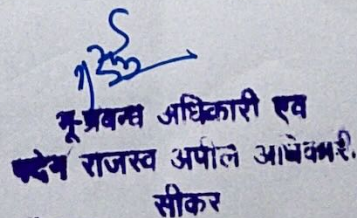 भू-प्रबन्ध अधिकारी एवं
पदेन राजस्व अपील अधिकारी.
सीकर